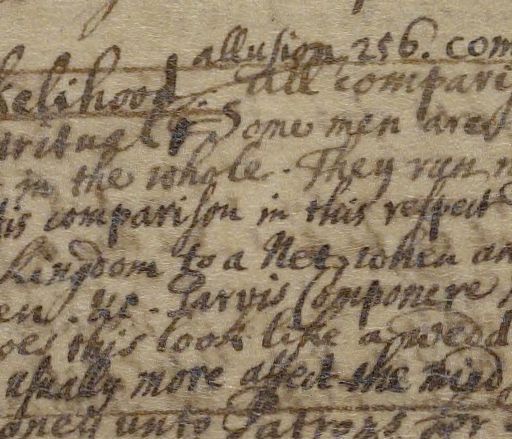 allusion 256. com
kelihood. All compari
iritual Some men are
in the whole. They run
his comparison in this respect
Kingdom to a Net, when an
en. &c. Parvis Componere
oes this look like a wedd
usually more affect the mind
oned unto Patrons or